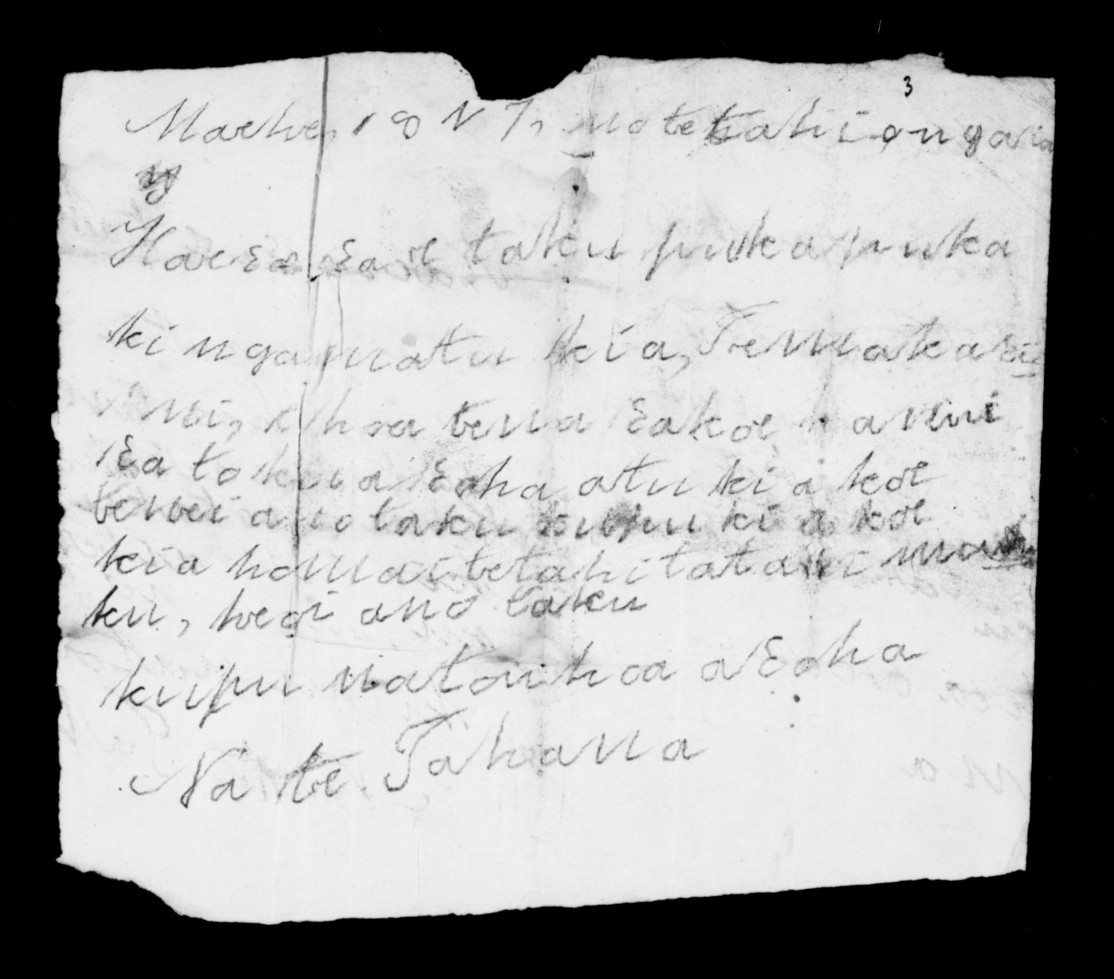 3
Maehe, 18 N 7, note tahi o nga ra
Haere ra, Ea oe taku pukapuka
ki nga matu kia, Te makari
ini, e hoa tena Ea koe kareni
Ea to kua Eoha atu ki a koe
tenei ano taku kupu ki a koe
kia homai tetahi tatani ma
ku, heoi ano taku
kupu na tou hoa aEoha
Na te Tahana